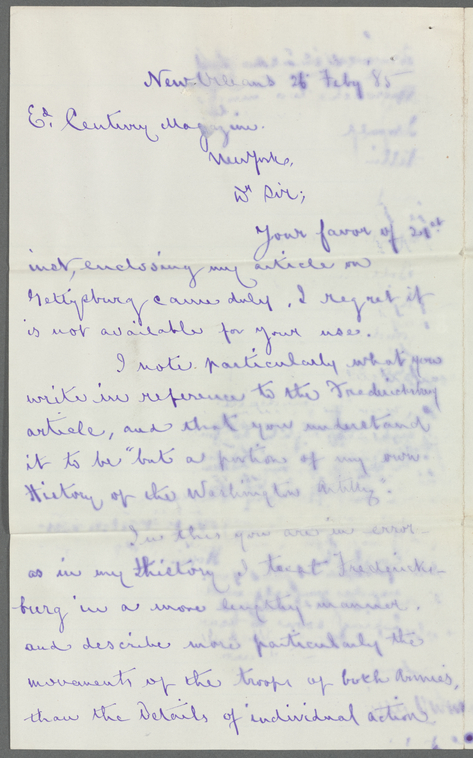 New Orleans 26 Feby 85
Ed. Century Magazine.
New York,
Dr Sir;
Your favor of 21st
inst, enclosing my article on
Gettysburg came duly, I regret it
is not available for your use.
I note particularly what you
write in reference to the Fredericksburg
article, and that you understand
it to be "but a portion of my own
History of the Washington Artilly".
In this you are in error
as in my History I treat Fredericks-
burg in a more lengthy manner.
and describe more particularly the
movements of the troops of both Armies,
than the Details of individual action